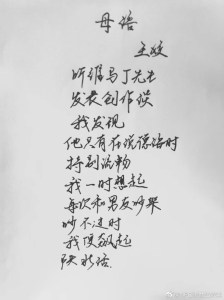 母语
听维马丁先生
发表创作谈
我发现
他只有在说德语时
特别流畅
我一时想起
每次和男友吵架
吵不过时
我 飙起
陕 话